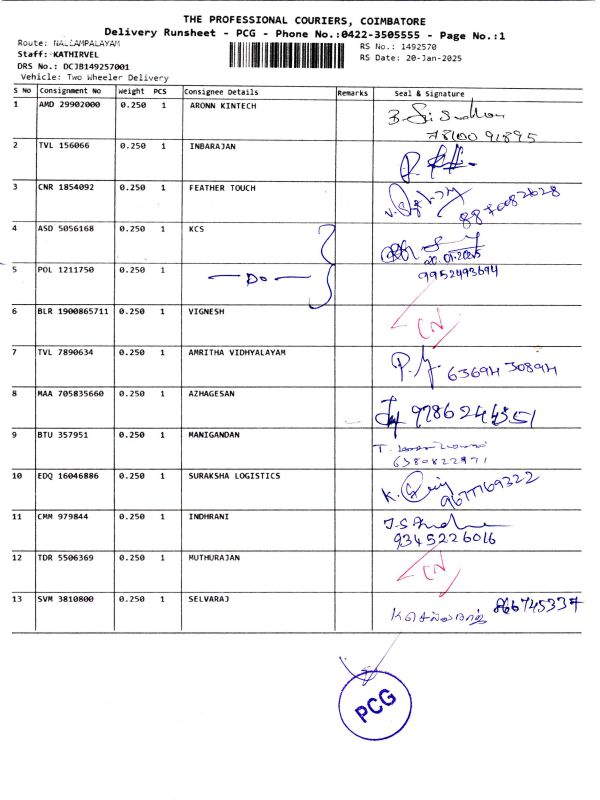 THE PROFESSIONAL COURIERS, COIMBATORE
Delivery Runsheet - PCG - Phone No.:0422-3505555 - Page No.:1
Route: NALLAMPALAYAM
RS No.: 1492570
Staff: KATHIRVEL
RS Date: 20-Jan-2025
DRS No.: DCJB149257001
Vehicle: Two Wheeler Delivery
S No Consignment No Weight PCS Consignee Details Remarks Seal & Signature
1 AMD 29902000 0.250 1 ARONN KINTECH
78100 91895
2 TVL 156066 0.250 1 INBARAJAN
3 CNR 1854092 0.250 1 FEATHER TOUCH
8870082628
4 ASD 5056168 0.250 1 KCS
20.01.2025
5 POL 1211750 0.250 1 — Do — 9952493694
6 BLR 1900865711 0.250 1 VIGNESH CN
7 TVL 7890634 0.250 1 AMRITHA VIDHYALAYAM
63694 30894
8 MAA 705835660 0.250 1 AZHAGESAN 9786244351
9 BTU 357951 0.250 1 MANIGANDAN
6380822971
10 EDQ 16046886 0.250 1 SURAKSHA LOGISTICS
9677769322
11 CMM 979844 0.250 1 INDHRANI
9345226016
12 TDR 5506369 0.250 1 MUTHURAJAN CN
13 SVM 3810800 0.250 1 SELVARAJ 866745337
K செல்வராஜ்
PCG